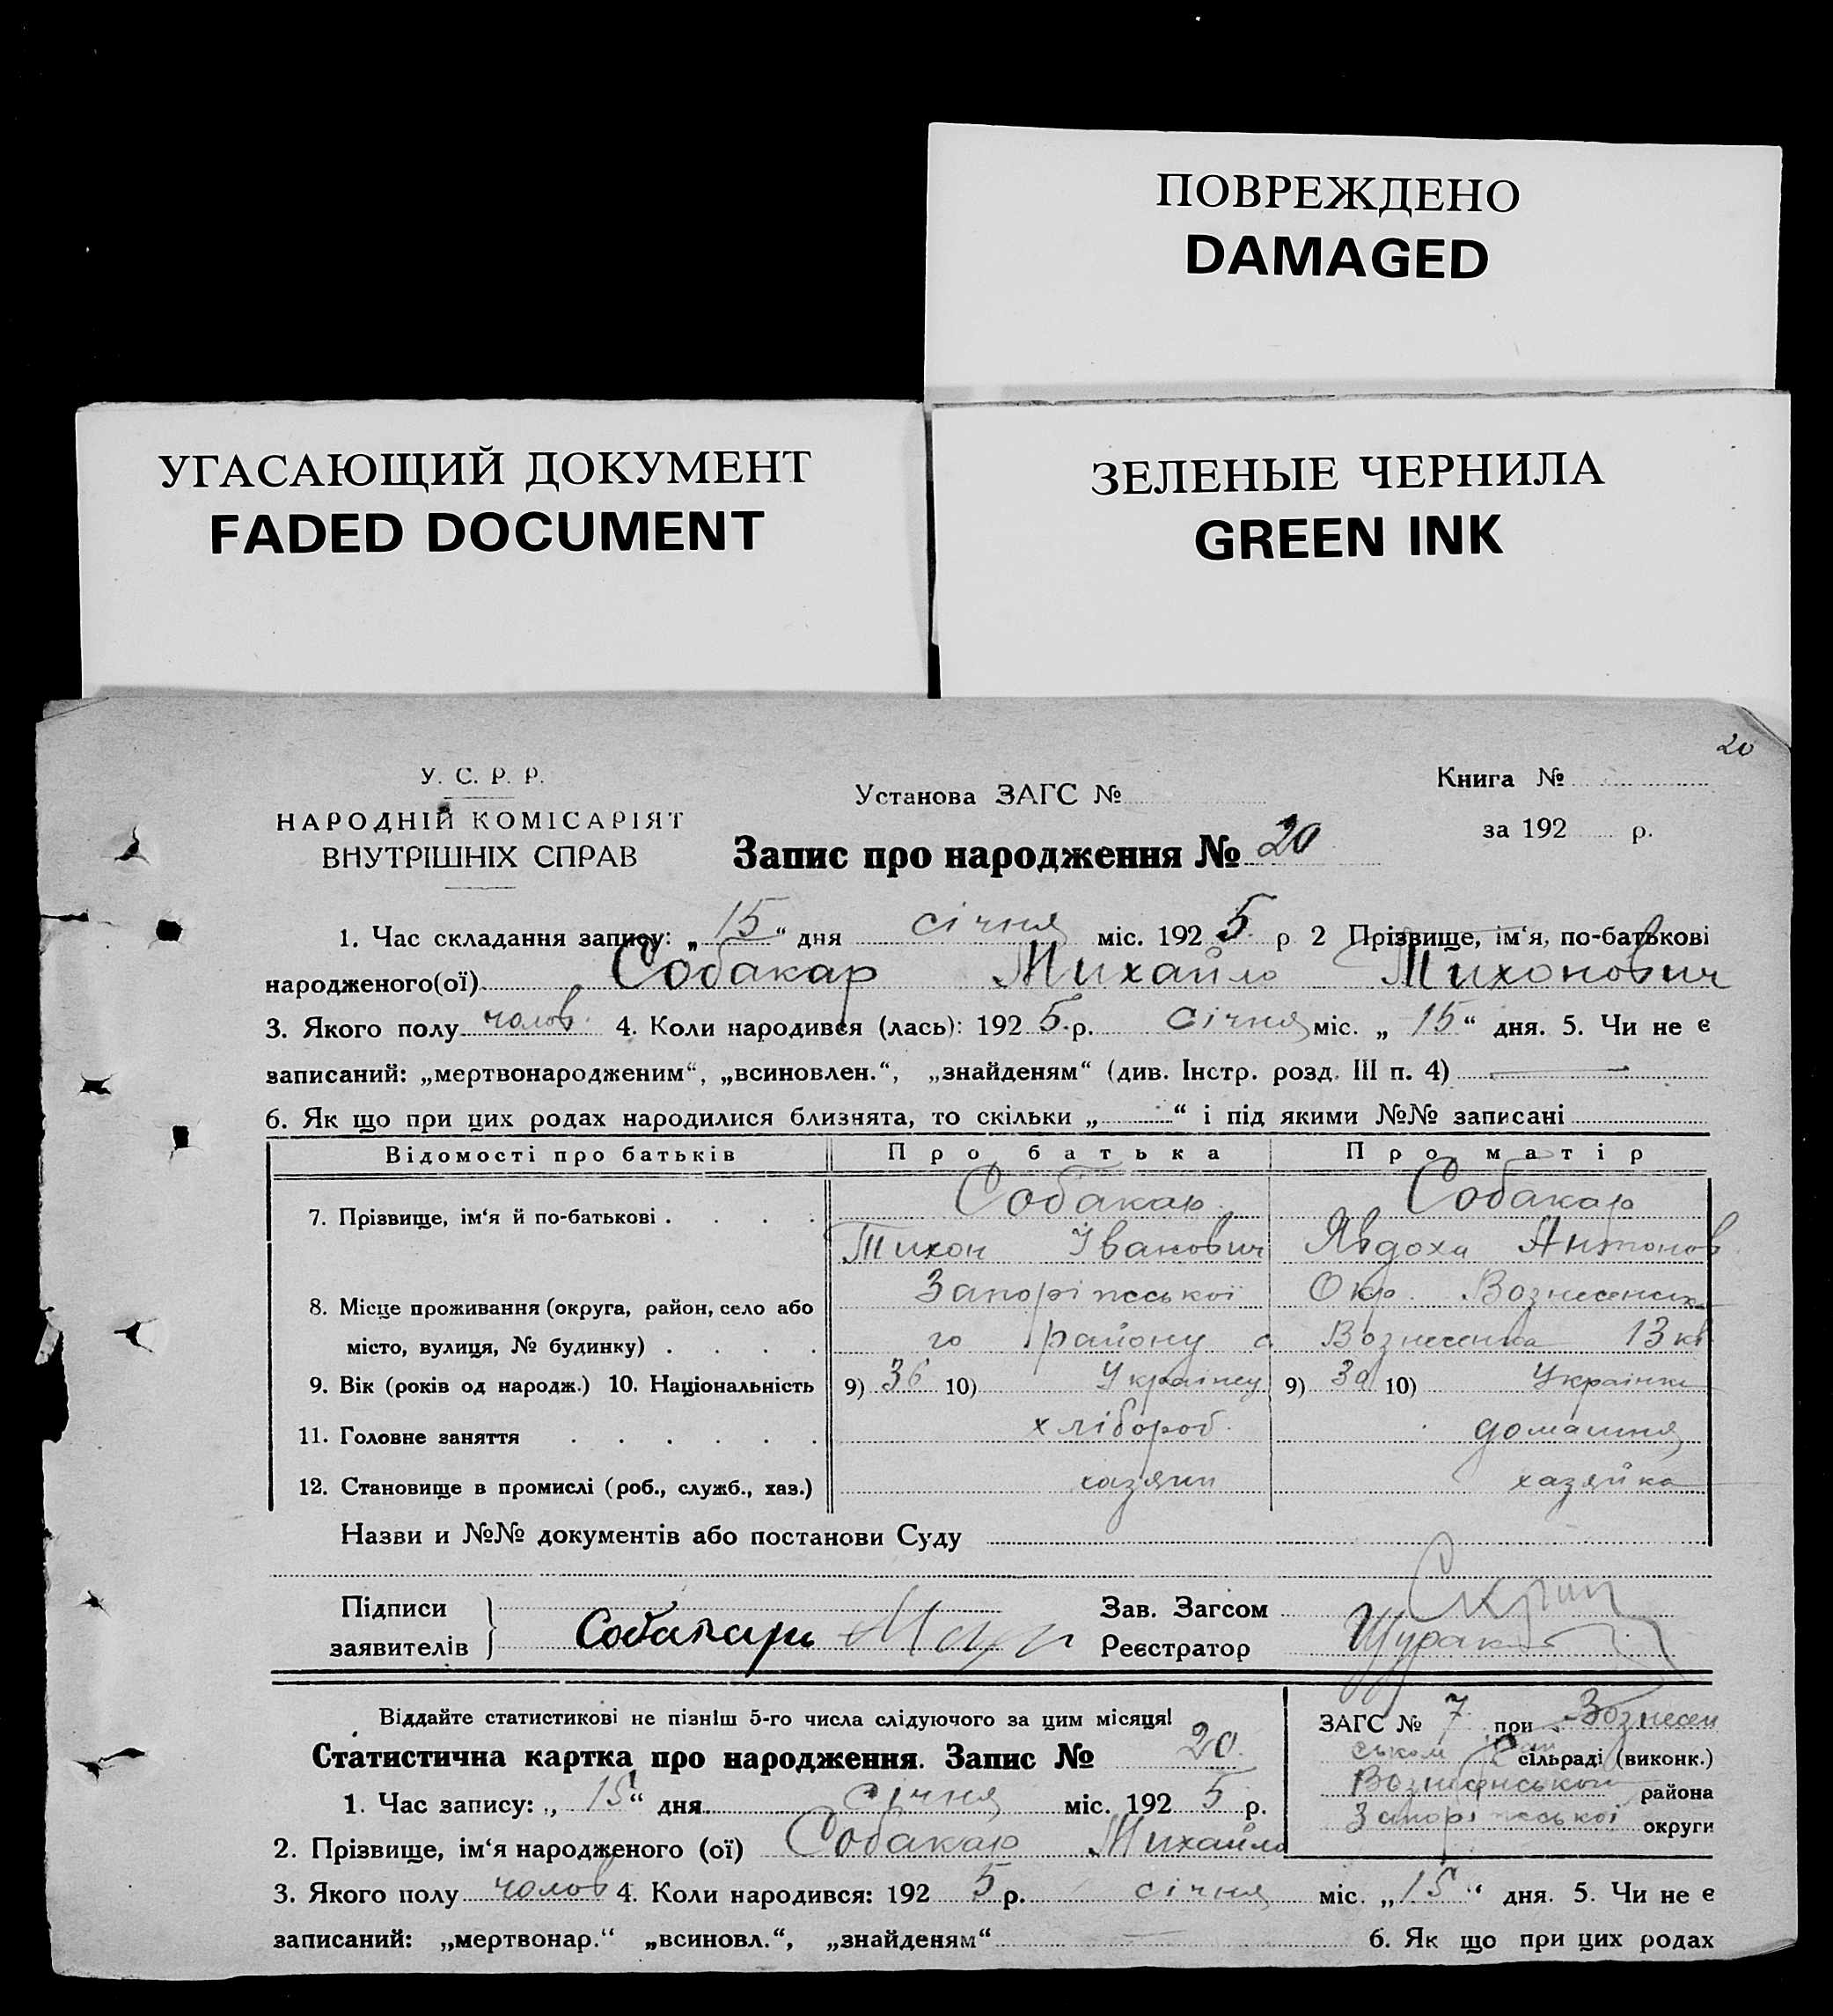 ПОВРЕЖДЕНО
DAMAGED
УГАСАЮЩИЙ ДОКУМЕНТ
FADED DOCUMENT
ЗЕЛЕНЫЕ ЧЕРНИЛА
GREEN INK
20
У. С. Р. Р.
НАРОДНІЙ КОМІСАРІЯТ
ВНУТРІШНІХ СПРАВ
Установа ЗАГС №
Книга №
за 192 р.
Запис про народження № 20
1. Час складання запису: „15“ дня січня міс. 1925 р 2 Прізвище, ім‘я, по-батькові
народженого(ої) Собакар Михайло Тихонович
3. Якого полу чолов. 4. Коли народився (лась): 1925 р. січня міс. „15“ дня. 5. Чи не є
записаний: „мертвонародженим“, „всиновлен.“, „знайденям“ (див. Інстр. розд. III п. 4)
6. Як що при цих родах народилися близнята, то скільки „ “ і під якими №№ записані
Відомості про батьків Про батька Про матір
7. Прізвище, ім‘я й по-батькові Собакар Собакар
Тихон Іванович Явдоха Антонов
Запоріжської Окр. Вознесенсько
8. Місце проживання (округа, район, село або
місто, вулиця, № будинку) го району с. Вознесенка 13 кв
9. Вік (років од народж.) 10. Національність 9) 36 10) Українец 9) 30 10) Українка
11. Головне заняття хлібороб. домашня
12. Становище в промислі (роб., служб., хаз.) хазяин хазяйка
Назви и №№ документів або постанови Суду
Підписи
заявителів
Собакарь
Зав. Загсом
Реєстратор
Віддайте статистикові не пізніш 5-го числа слідуючого за цим місяця!
Статистична картка про народження. Запис № 20.
ЗАГС № 7 при Вознесен
ськом сільраді (виконк.)
Вознесенської района
Запоріжської округи
1. Час запису: „15“ дня січня міс. 1925 р.
2. Прізвище, ім‘я народженого (ої) Собакар Михайло
3. Якого полу чолов 4. Коли народився: 1925 р. січня міс. „15“ дня. 5. Чи не є
записаний: „мертвонар.“ „всиновл.“, „знайденям“ 6. Як що при цих родах